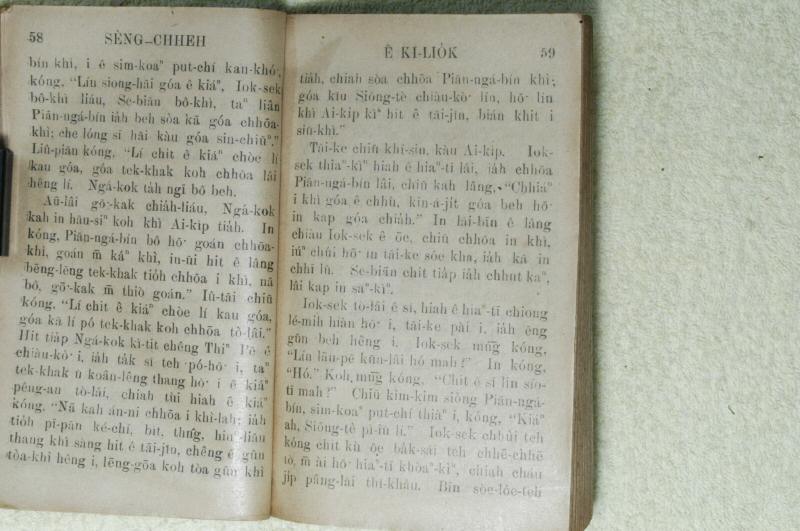 58 SÈNG–CHHEH
bín khì, i ê sim-koaⁿ put-chí kan-khó͘,
kóng, “Lín siong-hāi góa ê kiáⁿ, Iok-sek
bô-khì liáu, Se-biān bô-khì, taⁿ liân
Piān-ngá-bín iáh beh sòa kā góa chhōa-
khì; che lóng sī hāi kàu góa sin-chiūⁿ.”
Liû-piān kóng, “Lí chit ê kiáⁿ chòe lí
kau góa, góa tek-khak koh chhōa lâi
hêng lí. Ngá-kok tàh ngī bô beh.
Aū-lâi gō͘-kak chiáh-liáu, Ngá-kok
kah in hāu-siⁿ koh khì Ai-kip tiáh. In
kóng, Piān-ngá-bín bô hō͘ goán chhōa-
khì, goán m̄ káⁿ khì, in-ūi hit ê lâng
bēng-lēng tek-khak tióh chhōa i khì, nā
bô, gō͘-kak m̄ thiò goán.” Iû-tāi chiū
kóng, “Lí chit ê kiáⁿ chòe lí kau góa,
góa kā lí pó tek-khak koh chhōa tò-lâi.”
Hit tiáp Ngá-kok kì-tit chêng Thiⁿ Pē ê
chiàu-kò͘ i, iáh ták sî teh pó-hō͘ i, taⁿ
tek-khak ū koân-lêng thang hō͘ i ê kiáⁿ
pêng-an tò-lâi, chiah tùi hiah ê kiáⁿ
kóng, “Nā kah án-ni chhōa i khì-lah; iáh
tióh pī-pān ké-chí, bit, thn̂g, hiuⁿ-liāu
thang khì sàng hit ê tāi-jîn, chêng ê gûn
tòa-khì hêng i, lēng-gōa koh tòa gûn khì
Ê KI-LIÓK 59
tiáh, chiah sòa chhōa Piān-ngá-bín khì;
góa kiû Siōng-tè chiàu-kò͘ lín, hō͘ lín
khì Ai-kip kìⁿ hit ê tāi-jîn, biān khit i
siū-khì.”
Tāi-ke chiū khí-sin, kàu Ai-kip. Iok-
sek thiaⁿ-kìⁿ hiah ê hiaⁿ-tī lâi, iáh chhōa
Piān-ngá-bín lâi, chiū kah lâng, “Chhiáⁿ
i khì góa ê chhù, kin-á-jit góa beh hō͘
in kap góa chiáh.” In lāi-bīn ê lâng
chiàu Iok-sek ê ōe, chiū chhōa in khì,
iúⁿ chúi hō͘ in tāi-ke sóe kha, iáh kā in
chhī lû. Se-biān chit tiáp iáh chhut kaⁿ,
lâi kap in saⁿ-kìⁿ.
Iok-sek tò-lâi ê sî, hiah ê hiaⁿ-tī chiong
lé-mih hiàn hō͘ i, tāi-ke pài i, iáh ēng
gûn beh hêng i. Iok-sek mn̄g kóng,
“Lín lāu-pē kūn-lâi hó mah?” In kóng,
“Hó.” Koh mn̄g kóng, “Chit ê sī lín sió-
tī mah?” Chiū kim-kim siòng Piān-ngá-
bín, sim-koaⁿ put-chí thiàⁿ i, kóng, “Kiáⁿ
ah, Siōng-tè pì-iū lí.” Iok-sek chhùi teh
kóng chit kù ōe bák-sái teh chhē-chhē
tò, m̄ ài hō͘ hiaⁿ-tī khòaⁿ-kìⁿ, chiah cháu
jíp pâng-lāi thî-khàu. Bīn sóe-lóe-teh